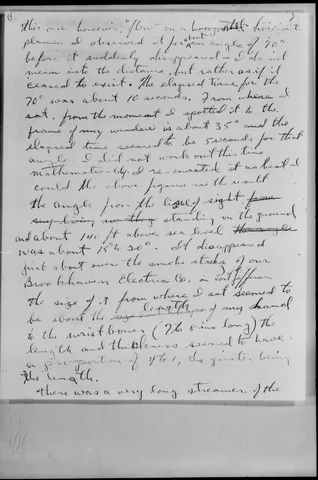 This one however, "flew" on a horizontal
plane. I observed it for about an angle of 70°
before it suddenly disappeared — I do not
mean into the distance, but rather as if it
ceased to exist. The elapsed time for the
70° was about 10 seconds. From where I
sat, from the moment I spotted it to the
frame of my window is about 35° and the
elapsed time seemed to be 5 seconds for that
angle. I did not work out this time
mathematically. I re-enacted it as best I
could the above figures are the result
the angle from the line of sight from
standing on the ground
and about 140 ft above sea level
was about 15° to 20°. It disappeared
just about over the smoke stacks of our
Brookhaven Electric Co. in Port Jefferson
the size of it from where I sat seemed to
be about the length of my hand
to the wrist bones (7 to 8 ins long) the
length and thickness seemed to have
a proportion of 4 to 1, the greater being
the length.
There was a very long streamer of the